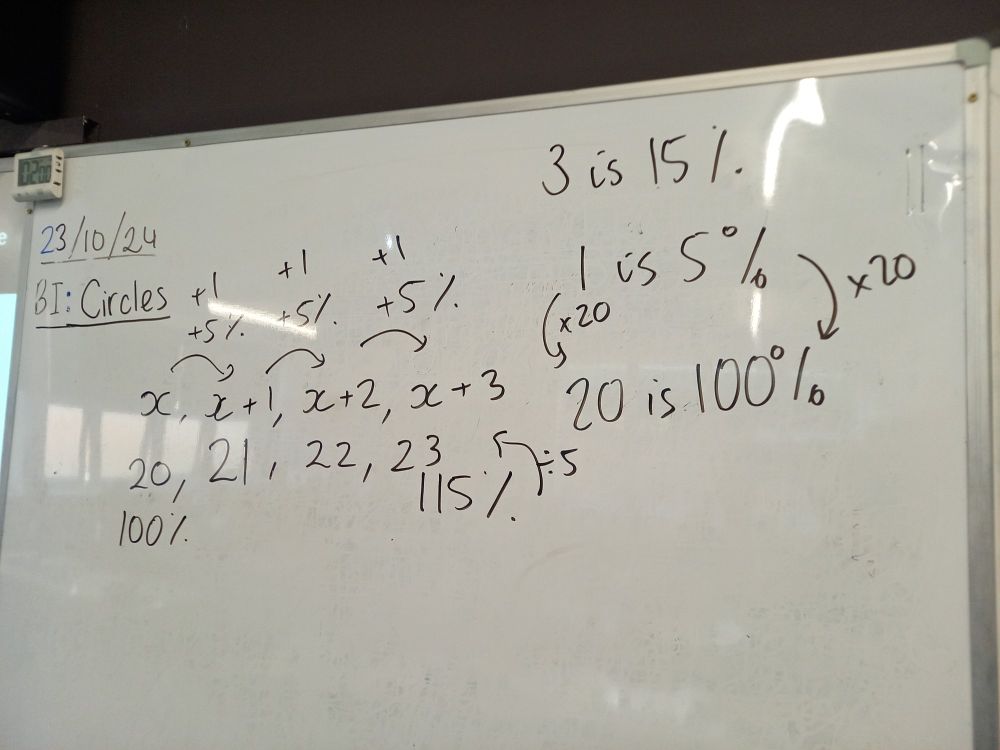 02:00
23/10/24
BI: Circles
+1 +1 +1
+5% +5% +5%
x, x+1, x+2, x+3
20, 21, 22, 23
100% 115% ÷5
3 is 15%.
1 is 5%
×20 ×20
20 is 100%